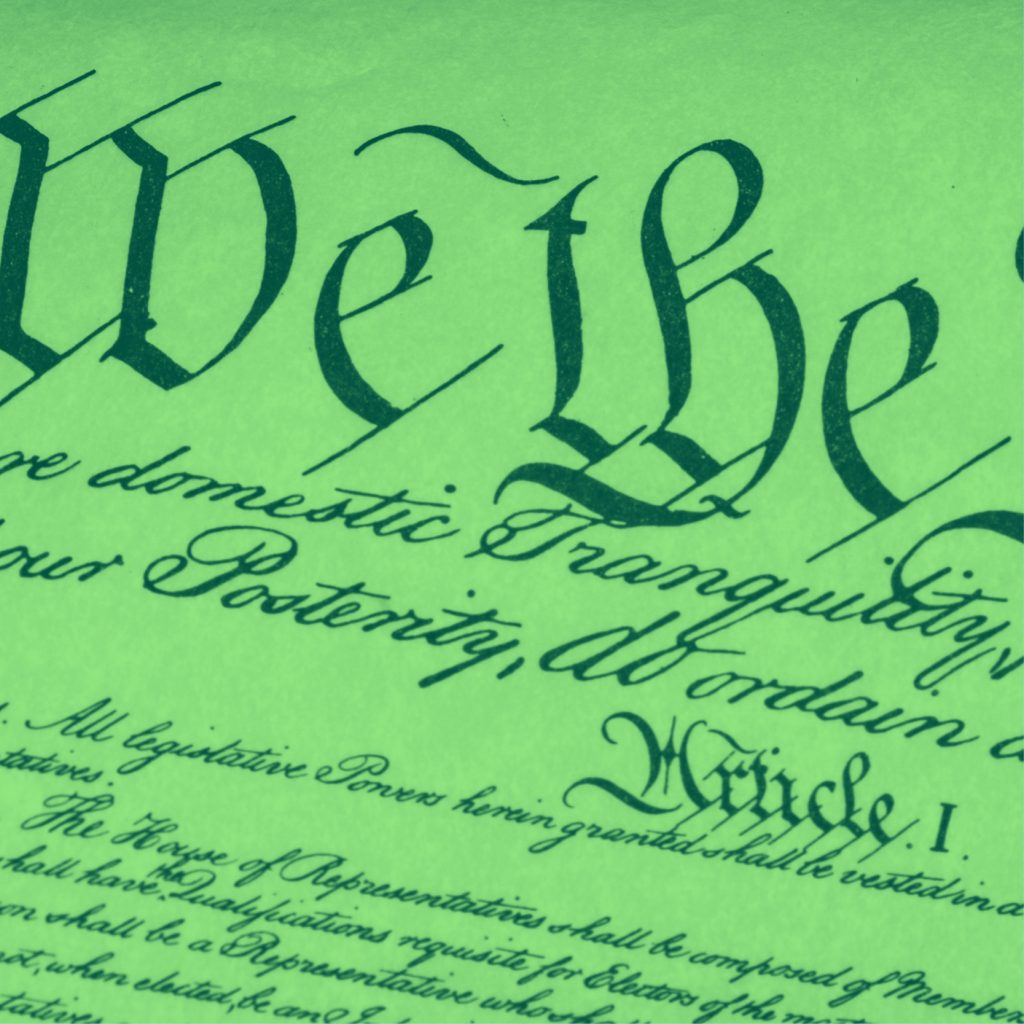 We the
re domestic Tranquility,
our Posterity, do ordain
Article. I.
. All legislative Powers herein granted shall be vested in a
tatives.
The House of Representatives shall be composed of Member
shall have the Qualifications requisite for Electors of the most
on shall be a Representative who shall
not, when elected, be an
tatives